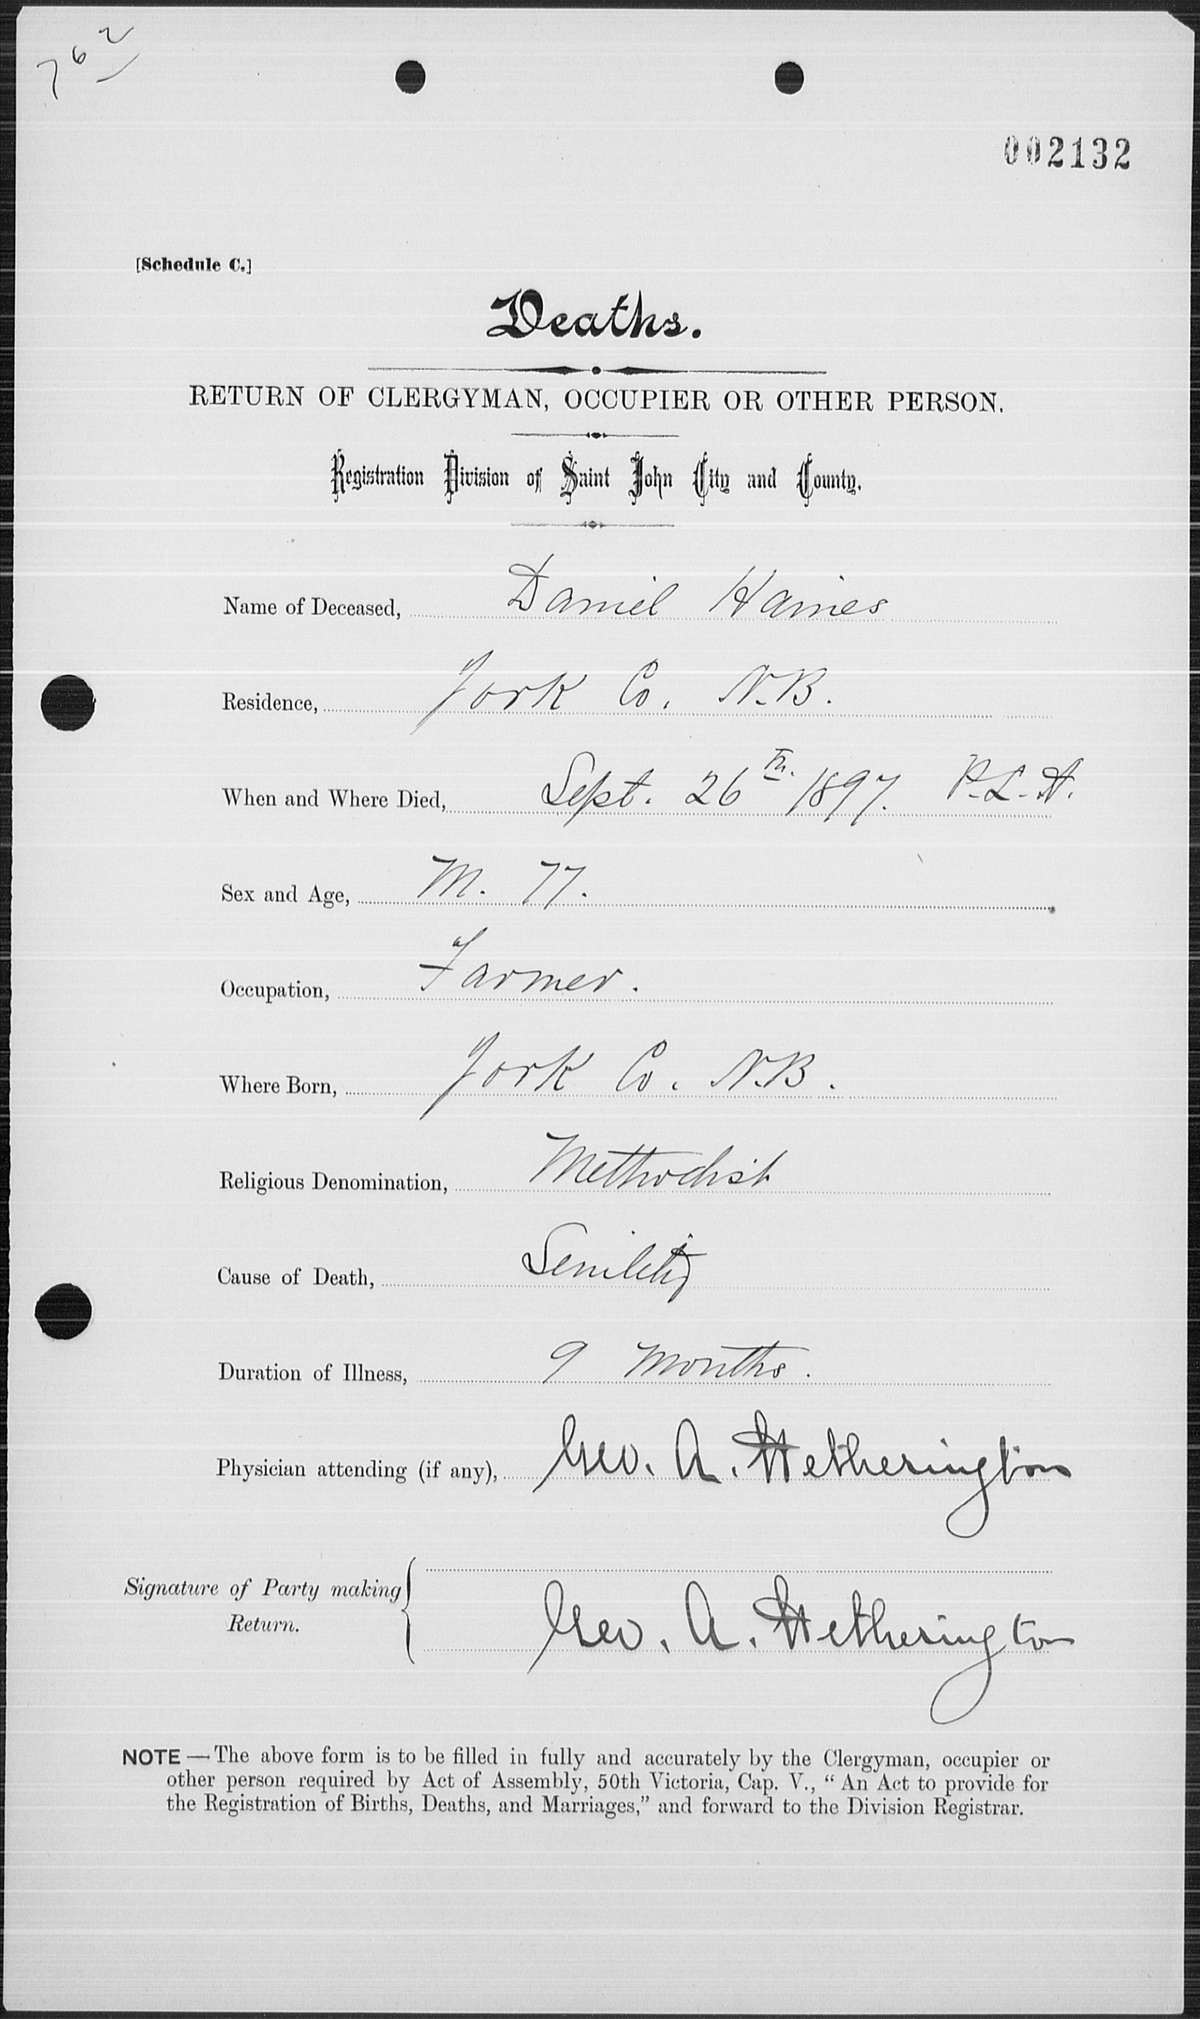 762
002132
[Schedule C.]
Deaths.
RETURN OF CLERGYMAN, OCCUPIER OR OTHER PERSON.
Registration Division of Saint John City and County.
Name of Deceased, Daniel Haines
Residence, York Co. N.B.
When and Where Died, Sept. 26th. 1897. P.L.A.
Sex and Age, M. 77.
Occupation, Farmer.
Where Born, York Co. N.B.
Religious Denomination, Methodist
Cause of Death, Senility
Duration of Illness, 9 Months.
Physician attending (if any), Geo. A. Hetherington
Signature of Party making
Return.
Geo. A. Hetherington
NOTE — The above form is to be filled in fully and accurately by the Clergyman, occupier or
other person required by Act of Assembly, 50th Victoria, Cap. V., “ An Act to provide for
the Registration of Births, Deaths, and Marriages,” and forward to the Division Registrar.